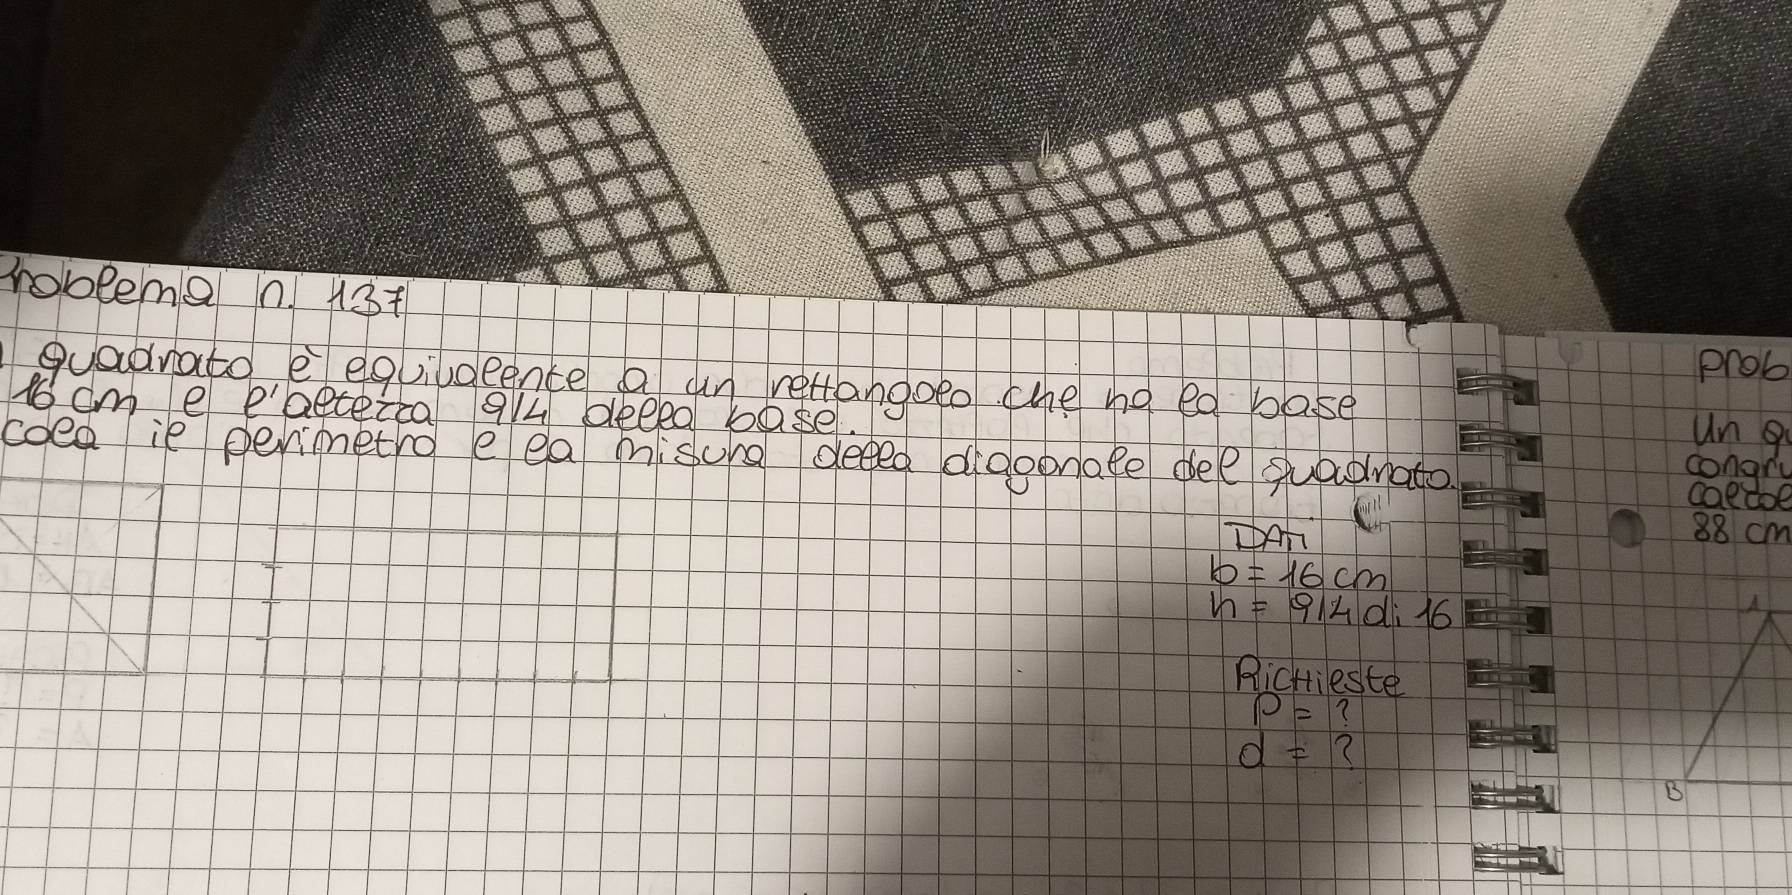 Problema n. 137
quadrato è equivalente a un rettangolo che ha la base
16 cm e l'altezza 9/4 della base.
cola il perimetro e la misura della diagonale del quadrato.
DATI
b = 16 cm
h = 9/4 di 16
RicHieste
P = ?
d = ?
prob
Un q
congru
calcol
88 cm
A
B